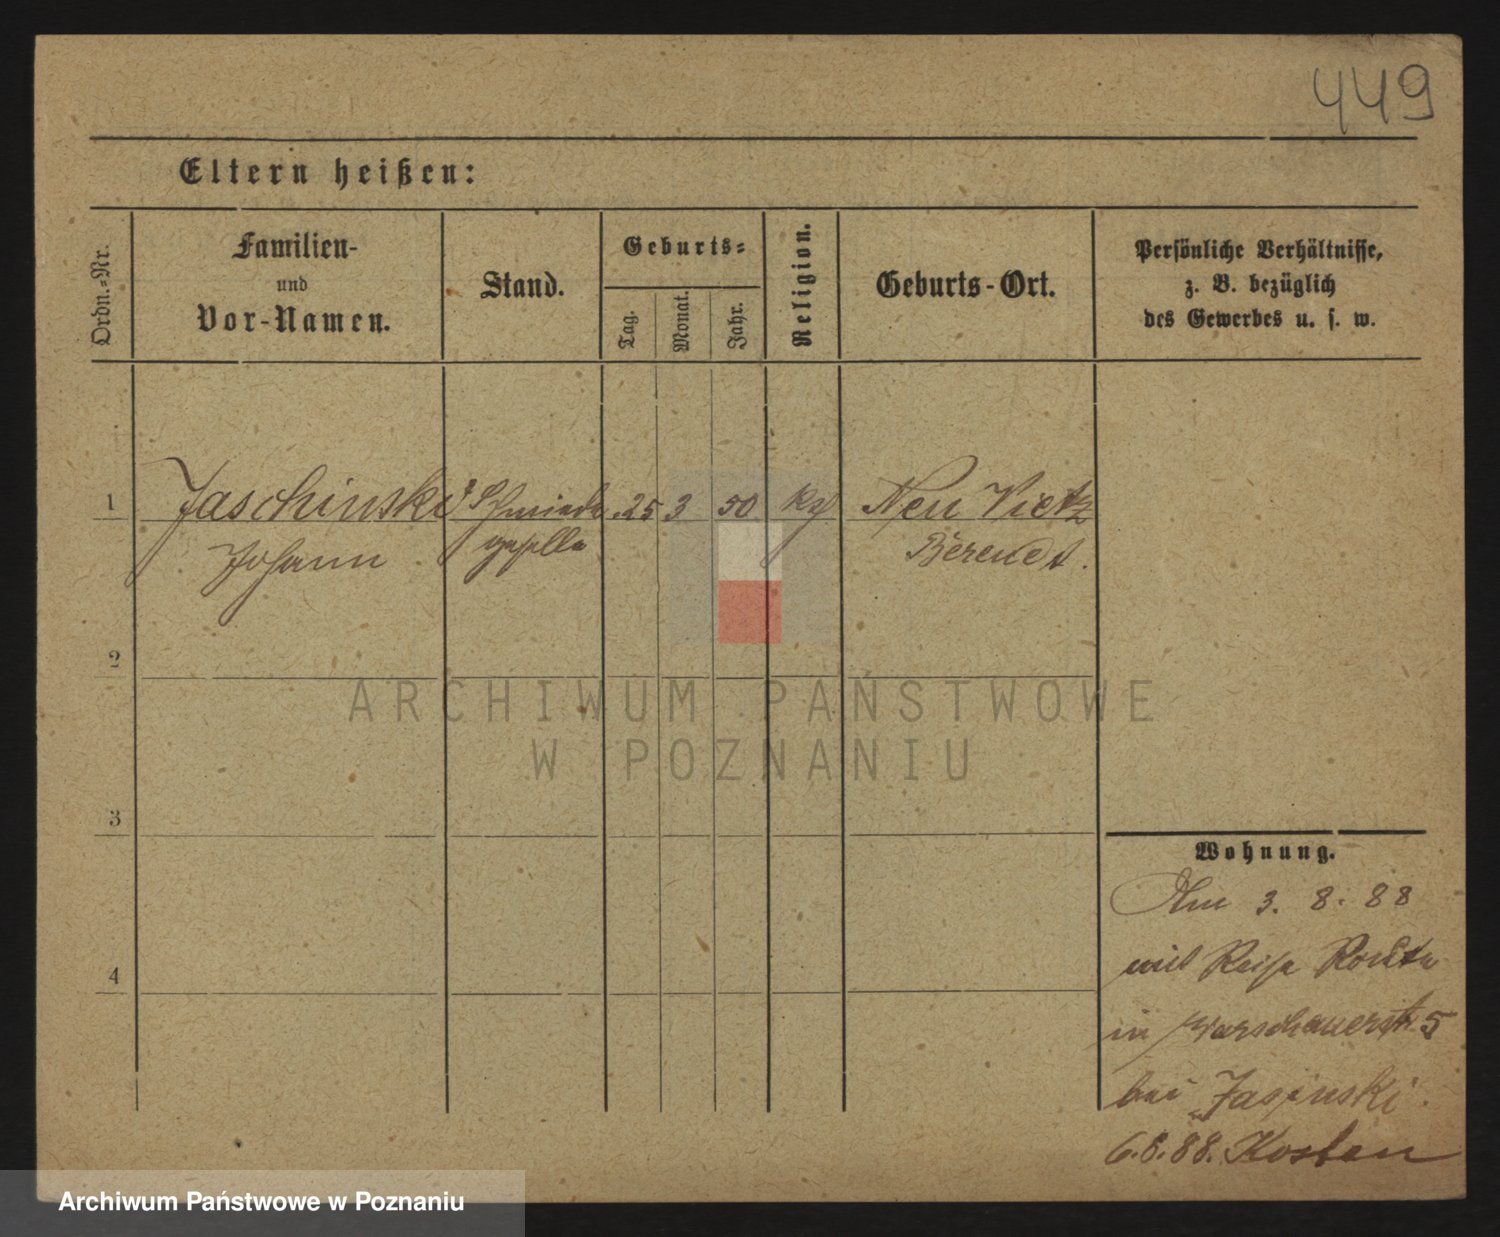 449
Eltern heißen:
Ordn.-Nr.
Familien-
und
Vor-Namen.
Stand.
Geburts-
Tag.
Monat.
Jahr.
Religion.
Geburts-Ort.
Persönliche Verhältnisse,
z. B. bezüglich
des Gewerbes u. s. w.
1 Jaschinski Schmiede 25 3 50 Neu Vietz
Johann geselle Berendt.
2
3
4
Wohnung.
Am 3. 8. 88
mit Reise Route
in Warschauerstr. 5
bei Jasinski.
6.8.88. Kosten
ARCHIWUM PAŃSTWOWE
W POZNANIU
Archiwum Państwowe w Poznaniu